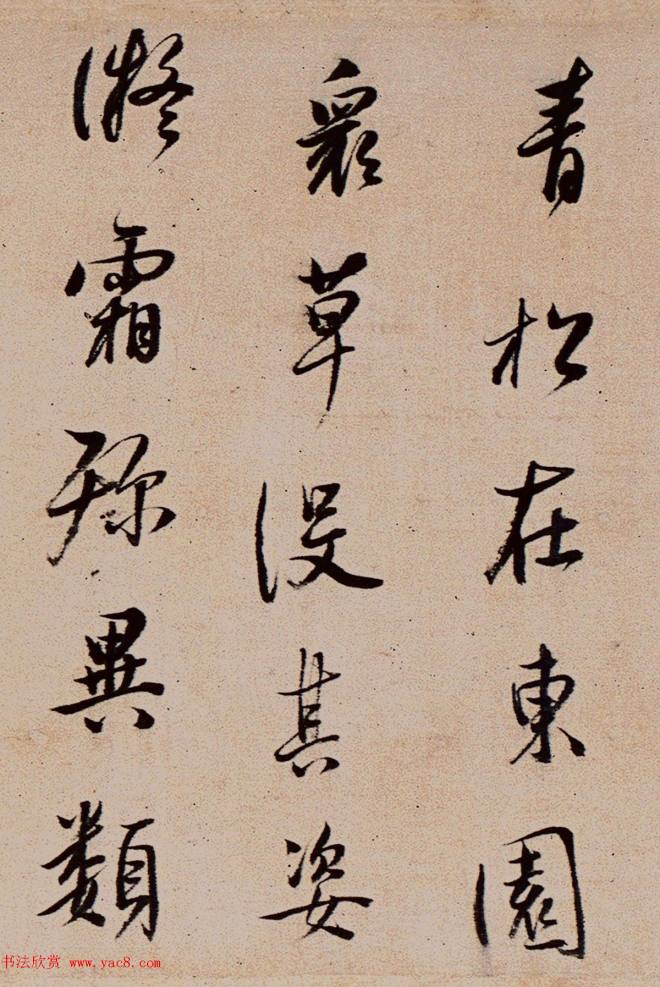 青松在東園
衆草没其姿
凝霜殄異類
书法欣赏 www.yac8.com